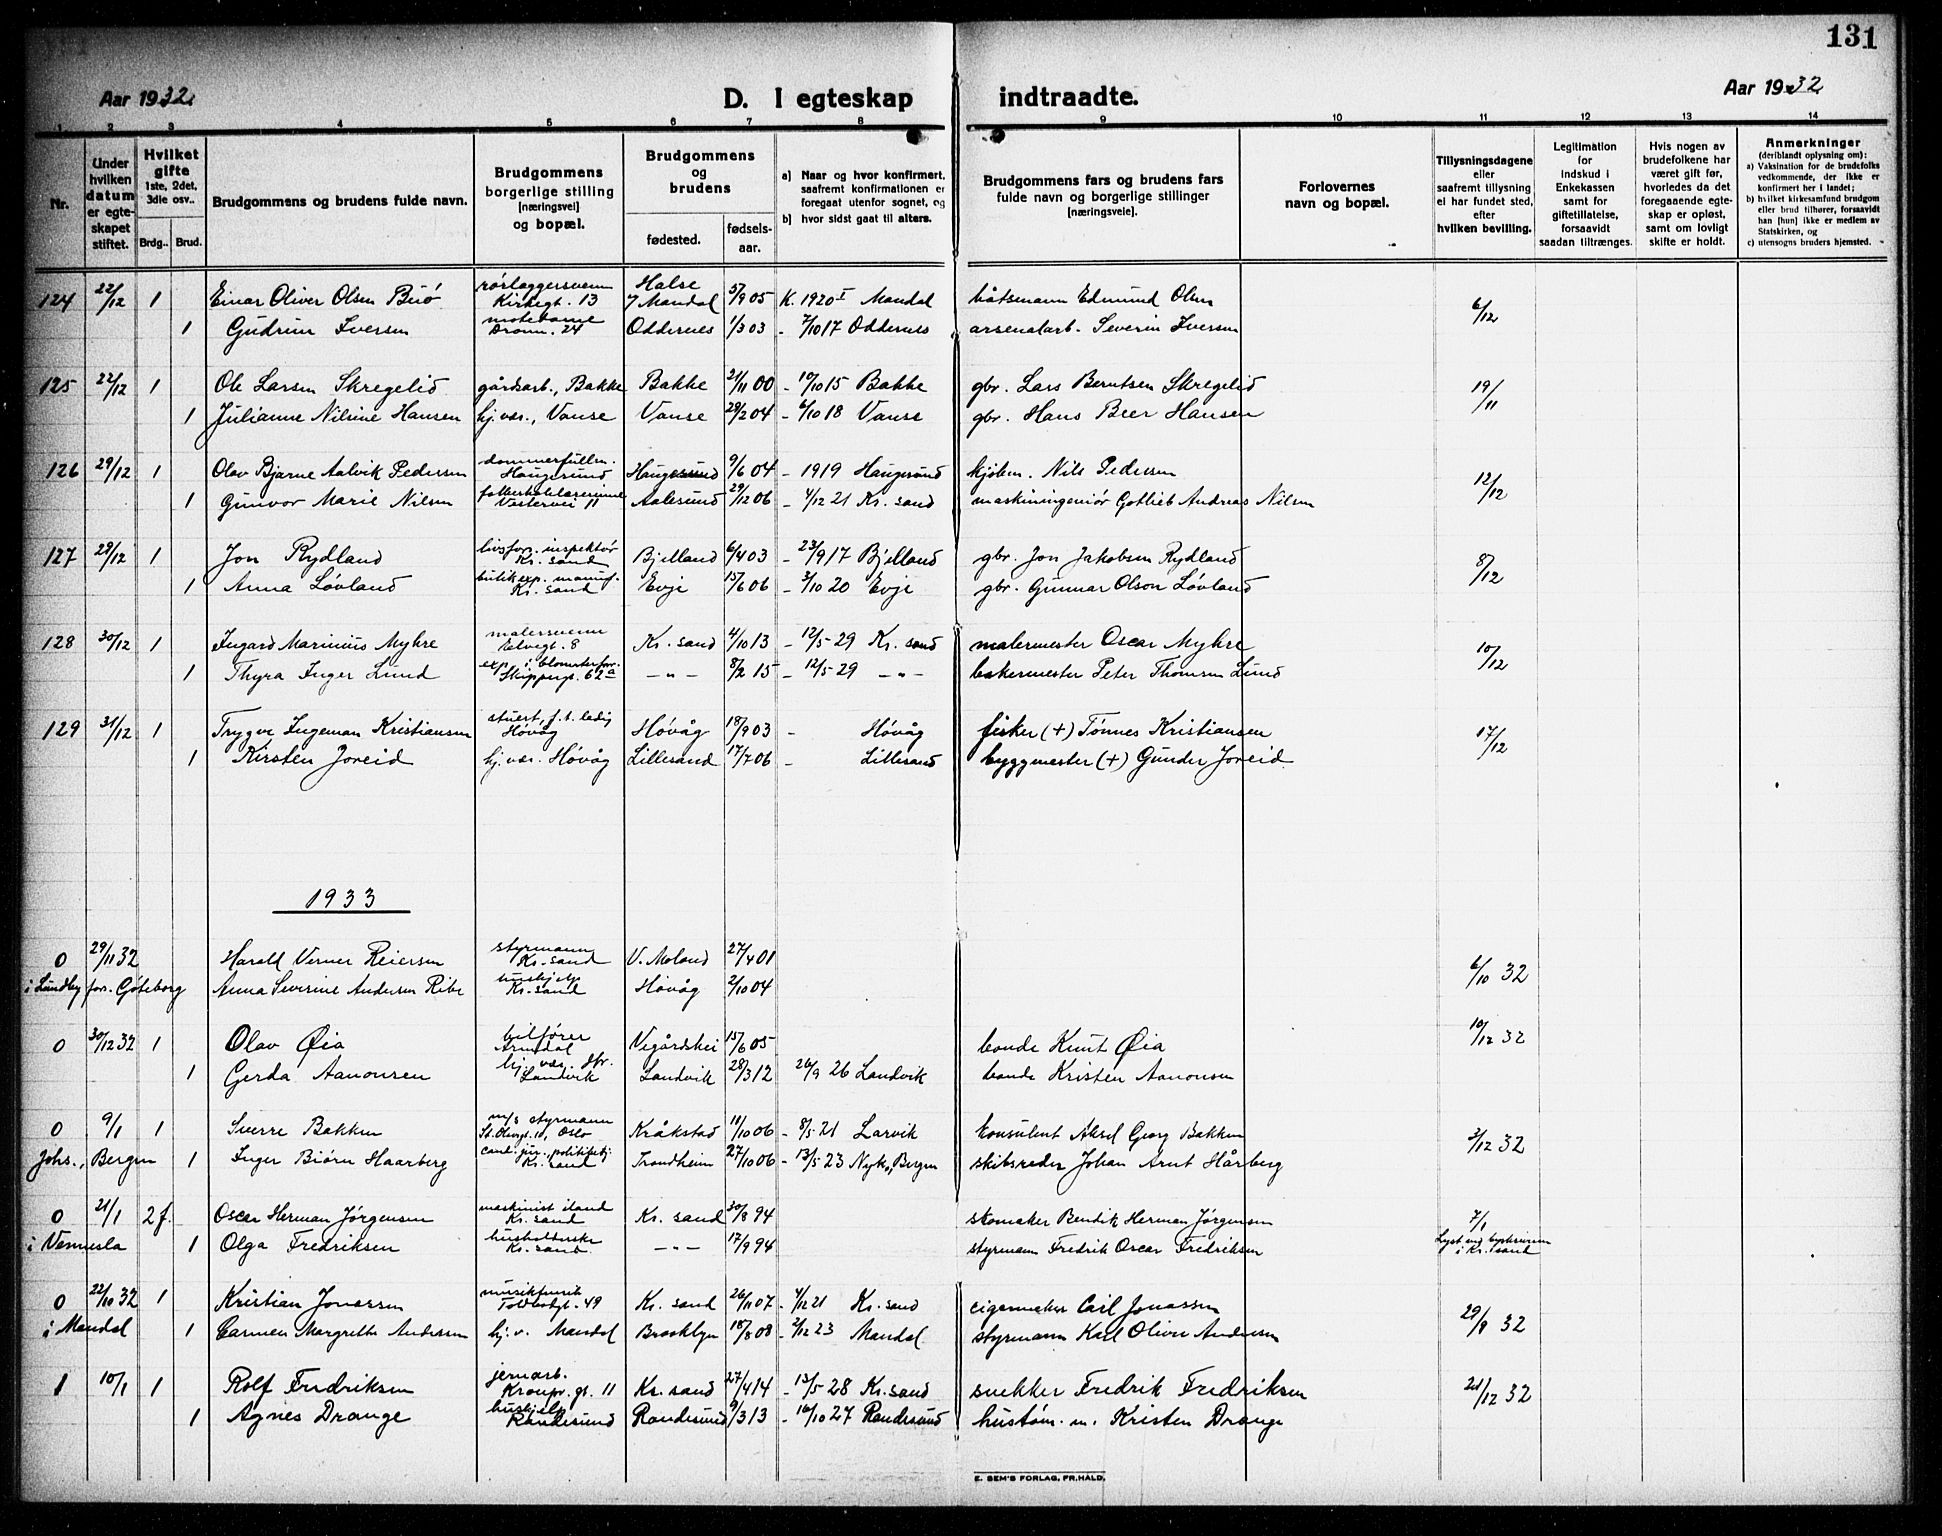 131
Aar 1932.
D. I egteskap indtraadte.
Aar 1932
1 2 3 4 5 6 7 8 9 10 11 12 13 14
Nr.
Under hvilken datum er egteskapet stiftet.
Hvilket gifte 1ste, 2det, 3die osv..
Brdg.. Brud.
Brudgommens og brudens fulde navn.
Brudgommens borgerlige stilling [næringsvei] og bopæl.
Brudgommens og brudens
fødested. fødsels-aar.
a) Naar og hvor konfirmert, saafremt konfirmationen er foregaat utenfor sognet, og
b) hvor sidst gaat til alters.
Brudgommens fars og brudens fars fulde navn og borgerlige stillinger [næringsveie].
Forlovernes navn og bopæl.
Tillysningsdagene eller saafremt tillysning ei har fundet sted, efter hvilken bevilling.
Legitimation for indskud i Enkekassen samt for giftetillatelse, forsaavidt saadan tiltrænges.
Hvis nogen av brudefolkene har været gift før, hvorledes da det foregaaende egteskap er opløst, samt om lovligt skifte er holdt.
Anmerkninger (deriblandt oplysning om):
a) Vaksination for de brudefolks vedkommende, der ikke er konfirmert her i landet;
b) hvilket kirkesamfund brudgom eller brud tilhører, forsaavidt han [hun] ikke er medlem av Statskirken, og
c) utensogns bruders hjemsted.
124 22/12 1 Einar Oliver Olsen Buö rörlæggersvenn Kirkegt. 13 Halse / Mandal 5/9 05 K. 1920 Mandal båtsmann Edmund Olsen 6/12
1 Gudrun Iversen Dronn. 24 Oddernes 1/3 03 - 7/10 17 Oddernes arsenalarb. Severin Iversen
125 22/12 1 Ole Larsen Skregelid gårdsarb., Bakke Bakke 21/11 00 - 10/10 15 Bakke gbr. Lars Berntsen Skregelid 19/11
1 Julianne Nilsine Hansen hj. vær., Vanse Vanse 29/2 04 - 6/10 18 Vanse gbr. Hans Beer Hansen
126 29/12 1 Olav Bjarne Aalvik Pedersen dommerfullm. Haugesund Haugesund 9/6 04 - 1919 Haugesund kjøbm. Nils Pedersen 12/12
1 Gunvor Marie Nilsen Vestervei 11 Aalesund 29/12 06 - 4/12 21 Kr. sand maskiningeniör Gotlieb Andreas Nilsen
127 29/12 1 Jon Rydland livsfors. inspektör Kr. sand Bjelland 6/4 03 - 23/9 17 Bjelland gbr. Jon Jakobsen Rydland 8/12
1 Anna Lövland butikexp. manuf. Kr. sand Evje 15/6 06 - 3/10 20 Evje gbr. Gunnar Olson Lövland
128 30/12 1 Ingard Marinius Myhre malersvenn Elvegt. 8 Kr. sand 4/10 13 - 12/5 - 29 Kr. sand malermester Oscar Myhre 10/12
1 Thyra Inger Lund exp. i blomsterfor. Skippergt. 62a - " - 8/2 15 - 12/5 - 29 - " - bakermester Peter Thomsen Lund
129 31/12 1 Trygve Ingeman Kristiansen stuert, f. t. ledig Høvåg Høvåg 18/9 03 - Høvåg fisker (+) Tönnes Kristiansen 17/12
1 Kirsten Joreid hj. vær. Høvåg Lillesand 17/7 06 - Lillesand byggmester (+) Gunder Joreid
1933
0 29/11 32 Harald Verner Reiersen styrmann Kr. sand V. Moland 27/4 01 6/10 32
i Lundby fors. Göteborg Anna Severine Andersen Ribe hushjelp Kr. sand Høvåg 2/10 04
0 30/12 32 1 Olav Øia bilfører Arendal Vegårdshei 15/6 05 bonde Knut Øia 10/12 32
1 Gerda Aanonsen hj. vær. dtr. Landvik Landvik 28/3 12 26/9 26 Landvik bonde Kristen Aanonsen
0 9/1 1 Sverre Bakken m/s styrmann St. Olavsgt. 11, Oslo Kråkstad 11/10 06 - 8/5 - 21 Larvik konsulent Aksel Georg Bakken 3/12 32
Johs., Bergen 1 Inger Biørn Haarberg cand. jur., Kr. sand Trondheim 27/10 06 - 13/5 23 Nyk., Bergen skibsreder Johan Arnt Hårberg
0 21/1 2 f. Oscar Herman Jørgensen maskinist iland Kr. sand Kr. sand 30/8 94 skomaker Bendik Herman Jørgensen 7/1
i Vennesla 1 Olga Fredriksen husholderske Kr. sand - " - 17/9 94 styrmann Fredrik Oscar Fredriksen i Kr. sand
0 22/10 32 1 Kristian Jonassen Toldbodgt. 49 Kr. sand 26/11 07 - 4/12 21 Kr. sand cigarmaker Carl Jonassen 29/9 32
i Mandal 1 Carmen Margrethe Andersen hj. v. Mandal Brooklyn 18/8 08 - 2/12 23 Mandal styrmann Karl Oliver Andersen
1 10/1 1 Rolf Fredriksen jernarb. Kronpr. gt. 11 Kr. sand 27/4 14 - 13/5 - 28 Kr. sand snekker Fredrik Fredriksen 21/12 32
1 Agnes Drange hushjelp Randesund Randesund 9/3 13 - 16/10 27 Randesund hustöm. m. Kristen Drange
E. SEM'S FORLAG, FR.HALD.